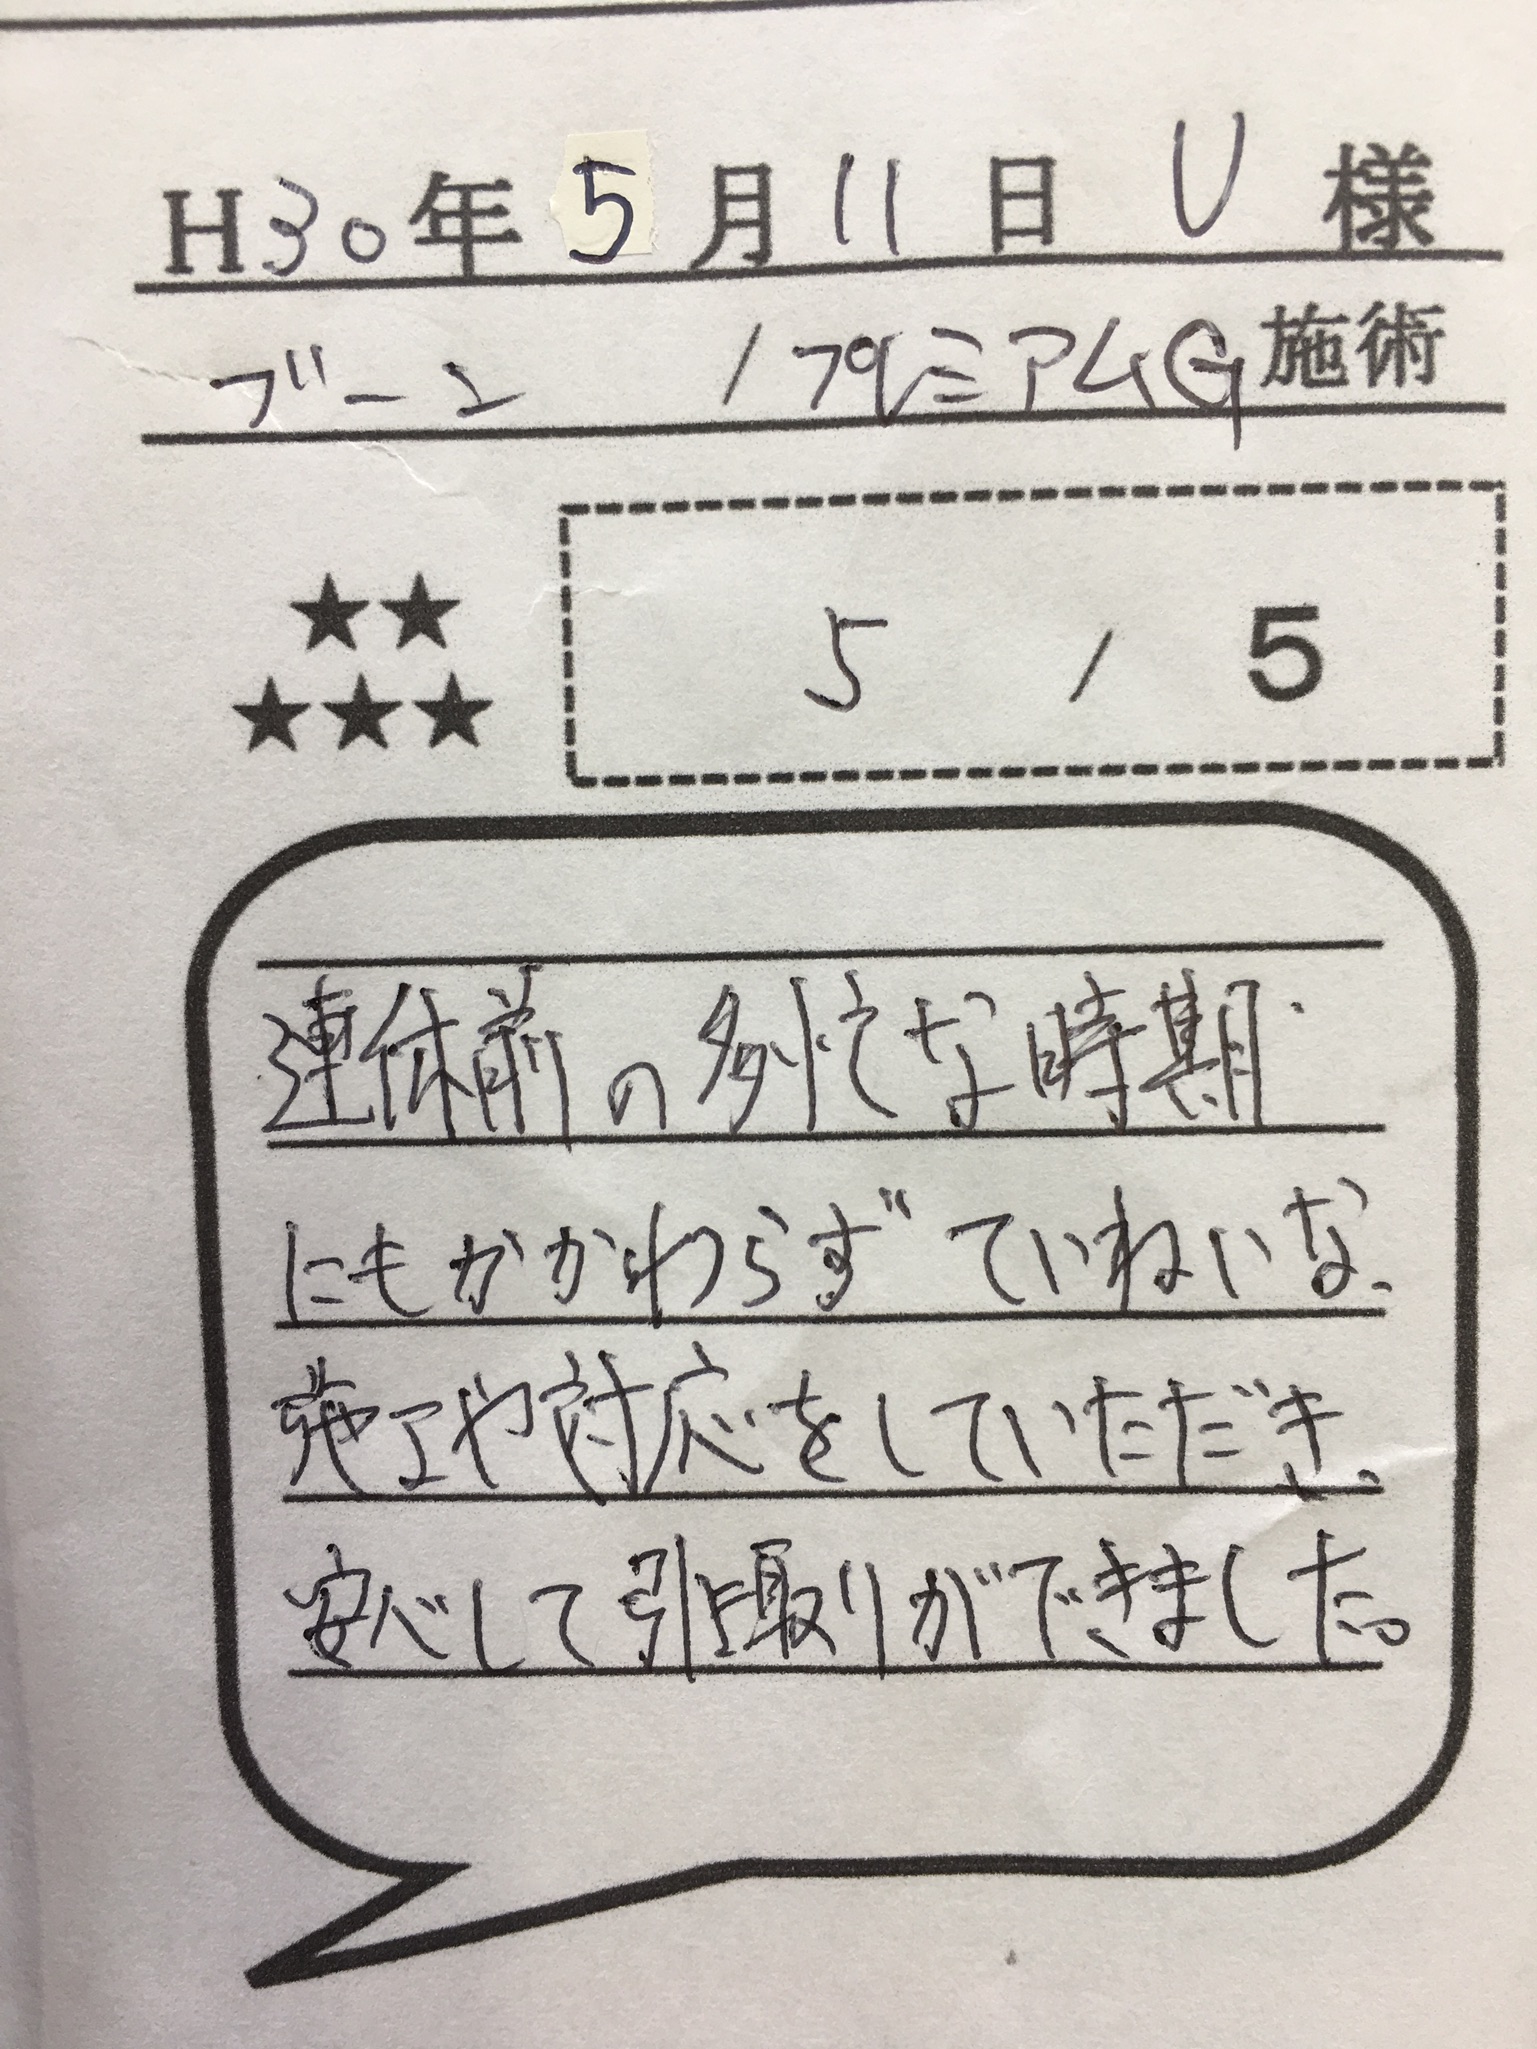 H30年 5月 11日 U 様
ブーン / プレミアムG 施術
★★
★★★
5 / 5
連休前の多忙な時期
にもかかわらず ていねいな、
施工や対応をしていただき、
安心して引取りができました。